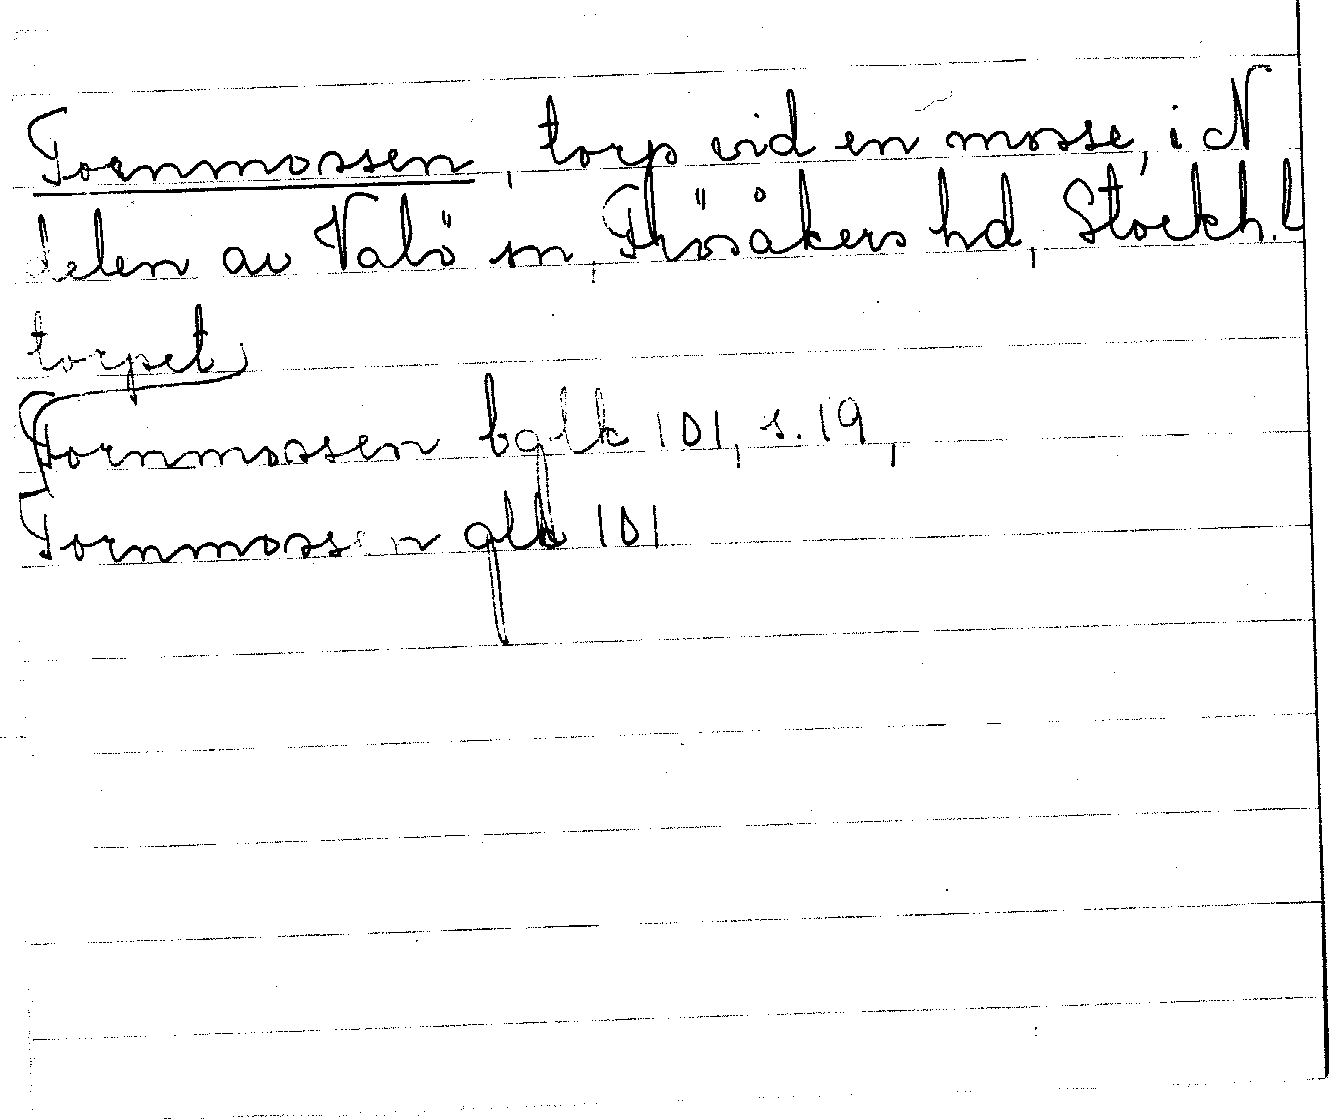 Tornmossen, torp vid en mosse, i N
delen av Valö sn, Frösåkers hd, Stockh. l
torpet
Tornmossen bglk 101, s. 19,
Tornmossen glk 101